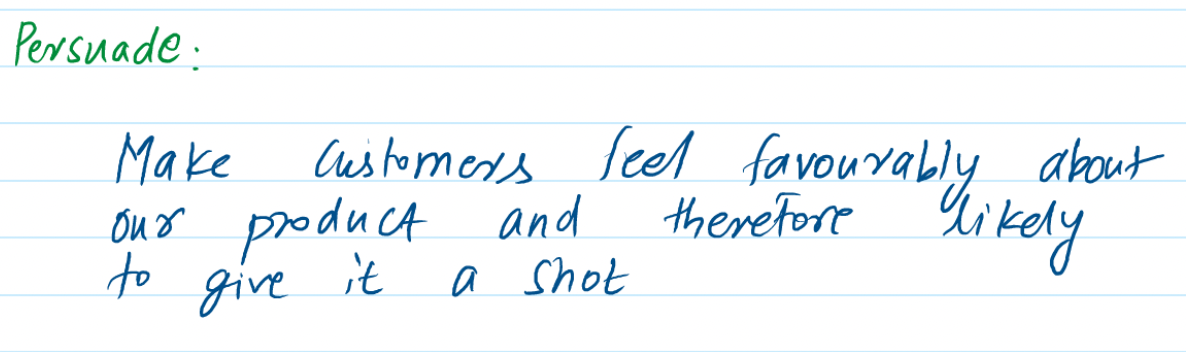 Persuade:
Make customers feel favourably about
our product and therefore likely
to give it a shot